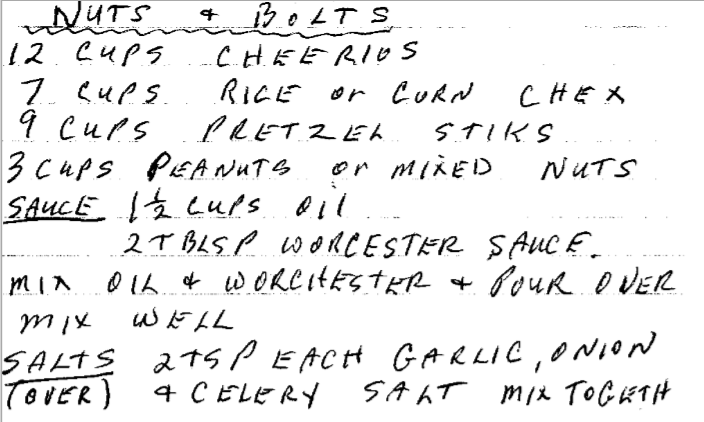 NUTS & BOLTS
12 CUPS CHEERIOS
7 CUPS RICE or CORN CHEX
9 CUPS PRETZEL STIKS
3 CUPS PEANUTS or MIXED NUTS
SAUCE 1½ CUPS OIL
2 TBLSP WORCESTER SAUCE.
MIX OIL & WORCHESTER & POUR OVER
MIX WELL
SALTS 2 TSP EACH GARLIC, ONION
(OVER) & CELERY SALT MIX TOGETH